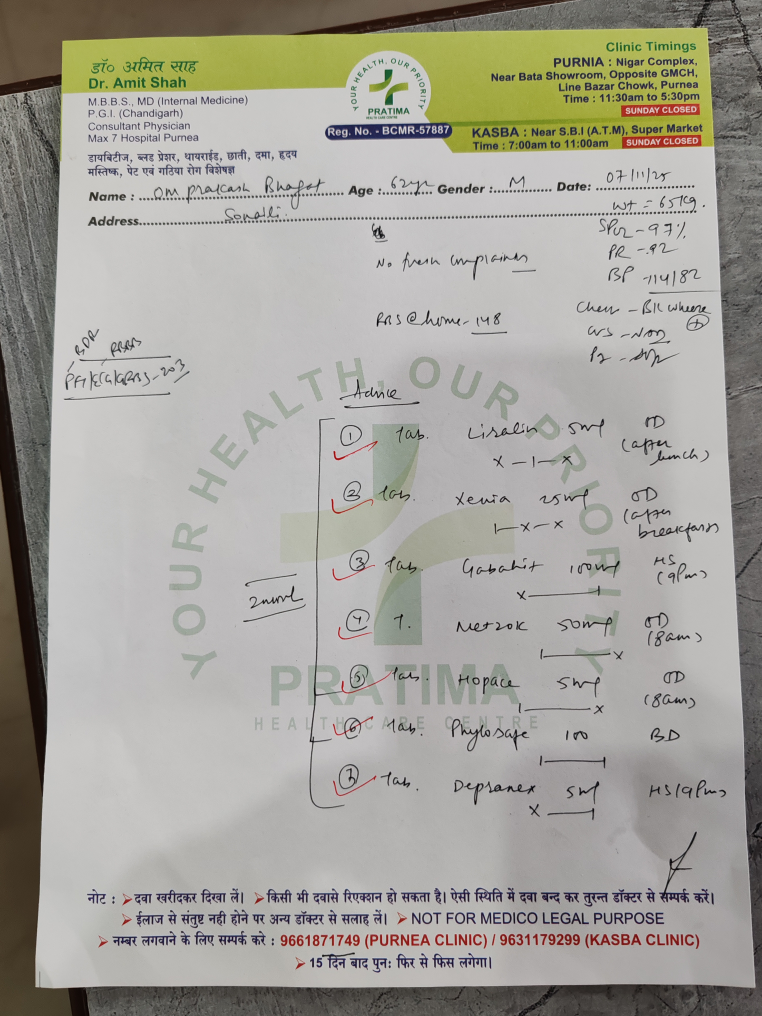 डॉ० अमित साह
Dr. Amit Shah
M.B.B.S., MD (Internal Medicine)
P.G.I. (Chandigarh)
Consultant Physician
Max 7 Hospital Purnea
डायबिटीज, ब्लड प्रेशर, थायराईड, छाती, दमा, हृदय
मस्तिष्क, पेट एवं गठिया रोग विशेषज्ञ
YOUR HEALTH, OUR PRIORITY
PRATIMA
HEALTH CARE CENTRE
Reg. No. - BCMR-57887
Clinic Timings
PURNIA : Nigar Complex,
Near Bata Showroom, Opposite GMCH,
Line Bazar Chowk, Purnea
Time : 11:30am to 5:30pm
SUNDAY CLOSED
KASBA : Near S.B.I (A.T.M), Super Market
Time : 7:00am to 11:00am SUNDAY CLOSED
Name : Om Prakash Bhagat Age : 62yr Gender : M Date: 07/11/25
Address Sonalli.
Wt = 65kg.
SPO2 - 97%
PR - 92
BP - 114/82
No fresh complaints
RBS @ home - 148
Chest - B/L wheeze
+
CVS -
P/A -
203
Advice
1 Tab. 5mg OD
(after lunch)
x - 1 - x
2 Tab. Xenia 25mg OD
(after breakfast)
1 - x - x
3 Tab. 100mg HS
(9pm)
x
4 T. Metzok 50mg OD
(8am)
x
5 Tab. Hopace 5mg OD
(8am)
x
6 Tab. 100 BD
7 Tab. Depranex 5mg HS (9pm)
x
YOUR HEALTH, OUR PRIORITY
PRATIMA
HEALTH CARE CENTRE
नोट : दवा खरीदकर दिखा लें। किसी भी दवासे रिएक्शन हो सकता है। ऐसी स्थिति में दवा बन्द कर तुरन्त डॉक्टर से सम्पर्क करें।
ईलाज से संतुष्ट नही होने पर अन्य डॉक्टर से सलाह लें। NOT FOR MEDICO LEGAL PURPOSE
नम्बर लगवाने के लिए सम्पर्क करे : 9661871749 (PURNEA CLINIC) / 9631179299 (KASBA CLINIC)
15 दिन बाद पुन: फिर से फिस लगेगा।